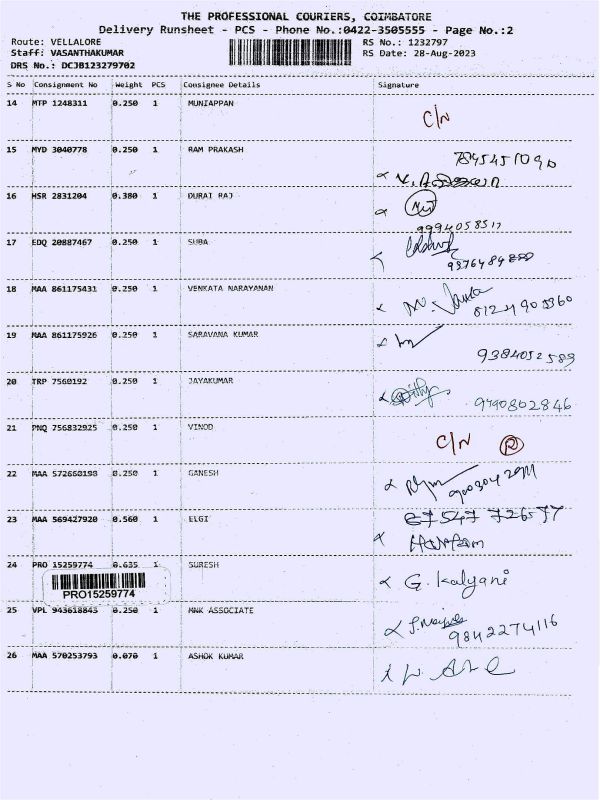 THE PROFESSIONAL COURIERS, COIMBATORE
Delivery Runsheet - PCS - Phone No.:0422-3505555 - Page No.:2
Route: VELLALORE RS No.: 1232797
Staff: VASANTHAKUMAR RS Date: 28-Aug-2023
DRS No.: DCJB123279702
S No Consignment No Weight PCS Consignee Details Signature
14 MTP 1248311 0.250 1 MUNIAPPAN
C/N
15 MYD 3040778 0.250 1 RAM PRAKASH
16 HSR 2831204 0.380 1 DURAI RAJ
9994058517
17 EDQ 20887467 0.250 1 SUBA
18 MAA 861175431 0.250 1 VENKATA NARAYANAN
19 MAA 861175926 0.250 1 SARAVANA KUMAR
9384052589
20 TRP 7560192 0.250 1 JAYAKUMAR
9790802846
21 PNQ 756832925 0.250 1 VINOD
C/N R
22 MAA 572660198 0.250 1 GANESH
23 MAA 569427920 0.560 1 ELGI
24 PRO 15259774 0.635 1 SURESH
PRO15259774
G. Kalyani
25 VPL 943618843 0.250 1 MNK ASSOCIATE
9842274116
26 MAA 570253793 0.070 1 ASHOK KUMAR